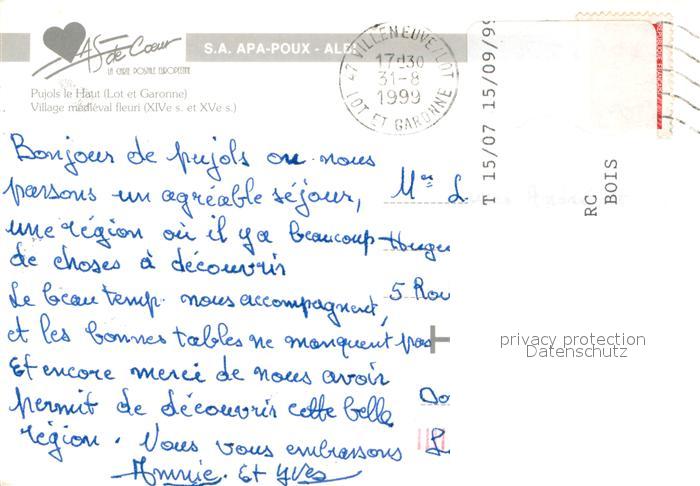 AS de Cœur
LA CARTE POSTALE EUROPEENNE
S.A. APA-POUX - ALBI
Pujols le Haut (Lot et Garonne)
Village médiéval fleuri (XIVe s. et XVe s.)
47 VILLENEUVE/LOT
17H30
31-8
1999
LOT ET GARONNE
T 15/07 15/09/99
RC
BOIS
Bonjour de pujols ou nous
passons un agréable séjour,
une région où il y a beaucoup
de choses à découvrir
Le beau temps nous accompagnent,
et les bonnes tables ne manquent pas
Et encore merci de nous avoir
permit de découvrir cette belle
région. Nous vous embrassons
Annie. Et Yves
L
5 Rou
Do
L
privacy protection
Datenschutz